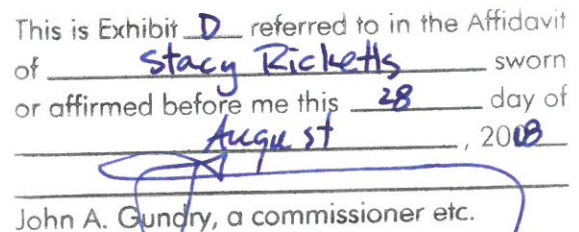 This is Exhibit D referred to in the Affidavit
of Stacy Ricketts sworn
or affirmed before me this 28 day of
August, 2018
John A. Gundry, a commissioner etc.